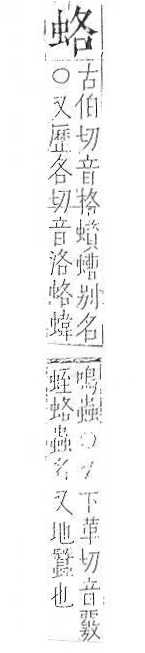 蛒
古伯切音格蠀螬别名
〇又歷各切音洛蛒蟳
鳴蟲〇 下革切音覈
蛭蛒蟲名又地蠶也